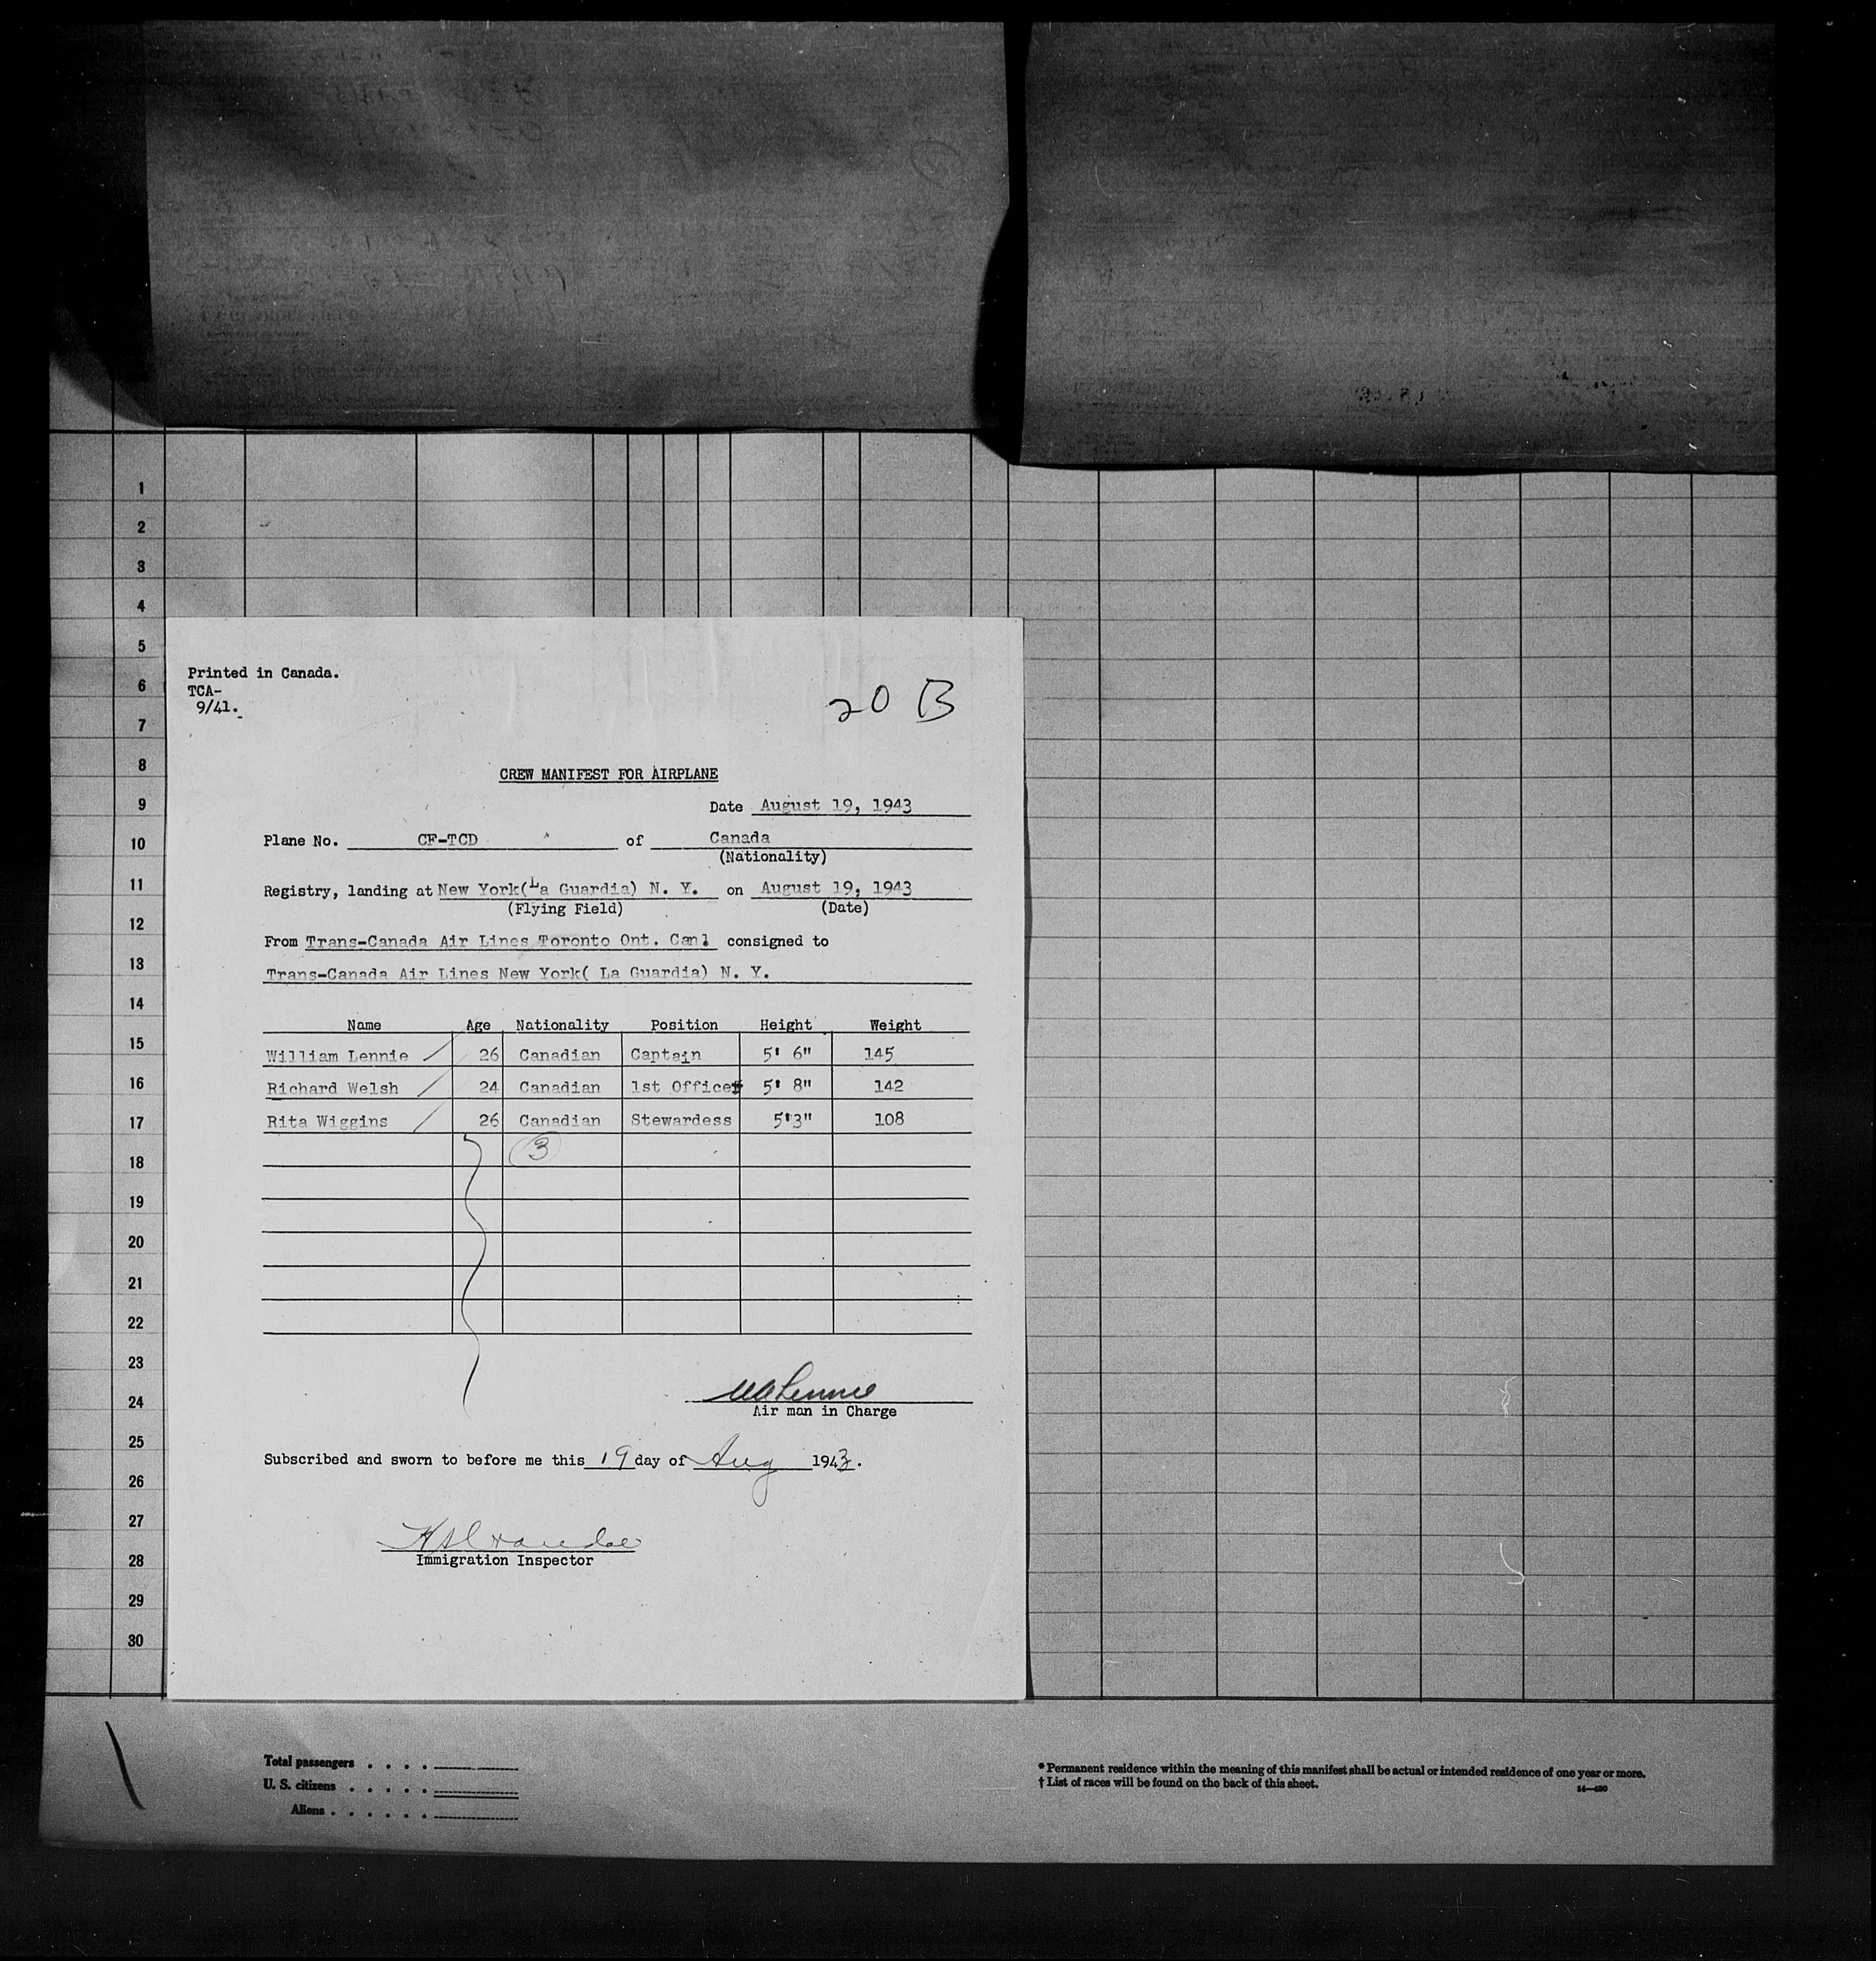 1
2
3
4
5
6
7
8
9
10
11
12
13
14
15
16
17
18
19
20
21
22
23
24
25
26
27
28
29
30
Printed in Canada.
TCA-
9/41.
20 B
CREW MANIFEST FOR AIRPLANE
Date August 19, 1943
Plane No. CF-TCD of Canada
(Nationality)
Registry, landing at New York(La Guardia) N. Y. on August 19, 1943
(Flying Field) (Date)
From Trans-Canada Air Lines Toronto Ont. Can. consigned to
Trans-Canada Air Lines New York( La Guardia) N. Y.
Name Age Nationality Position Height Weight
William Lennie 26 Canadian Captain 5' 6" 145
Richard Welsh 24 Canadian 1st Officer 5' 8" 142
Rita Wiggins 26 Canadian Stewardess 5'3" 108
3
Lennie
Air man in Charge
Subscribed and sworn to before me this 19 day of Aug 1943.
Immigration Inspector
Total passengers . . . .
U. S. citizens . . . . .
Aliens . . . . . .
* Permanent residence within the meaning of this manifest shall be actual or intended residence of one year or more.
† List of races will be found on the back of this sheet.